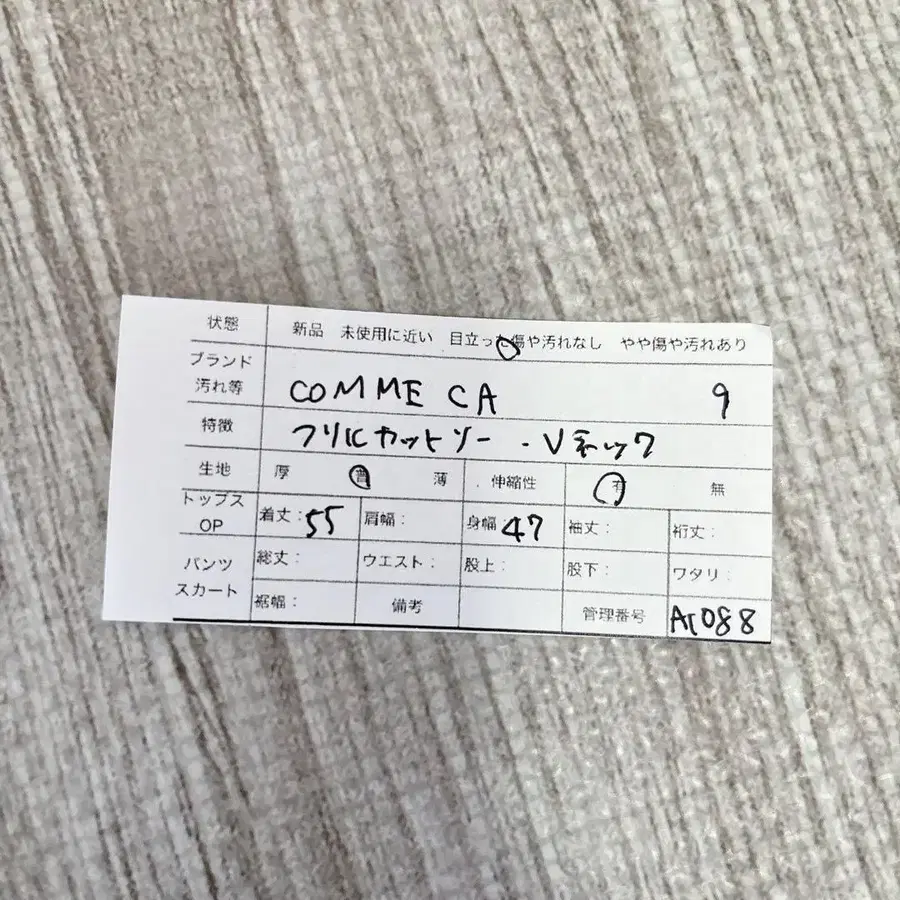 状態 新品 未使用に近い 目立った傷や汚れなし やや傷や汚れあり
ブランド
汚れ等 COMME CA 9
特徴 フリルカットソー ・Vネック
生地 厚 普 薄 伸縮性 有 無
トップス
OP 着丈:55 肩幅: 身幅 47 袖丈: 裄丈:
パンツ
スカート 総丈: ウエスト: 股上: 股下: ワタリ:
裾幅: 備考 管理番号 A1088